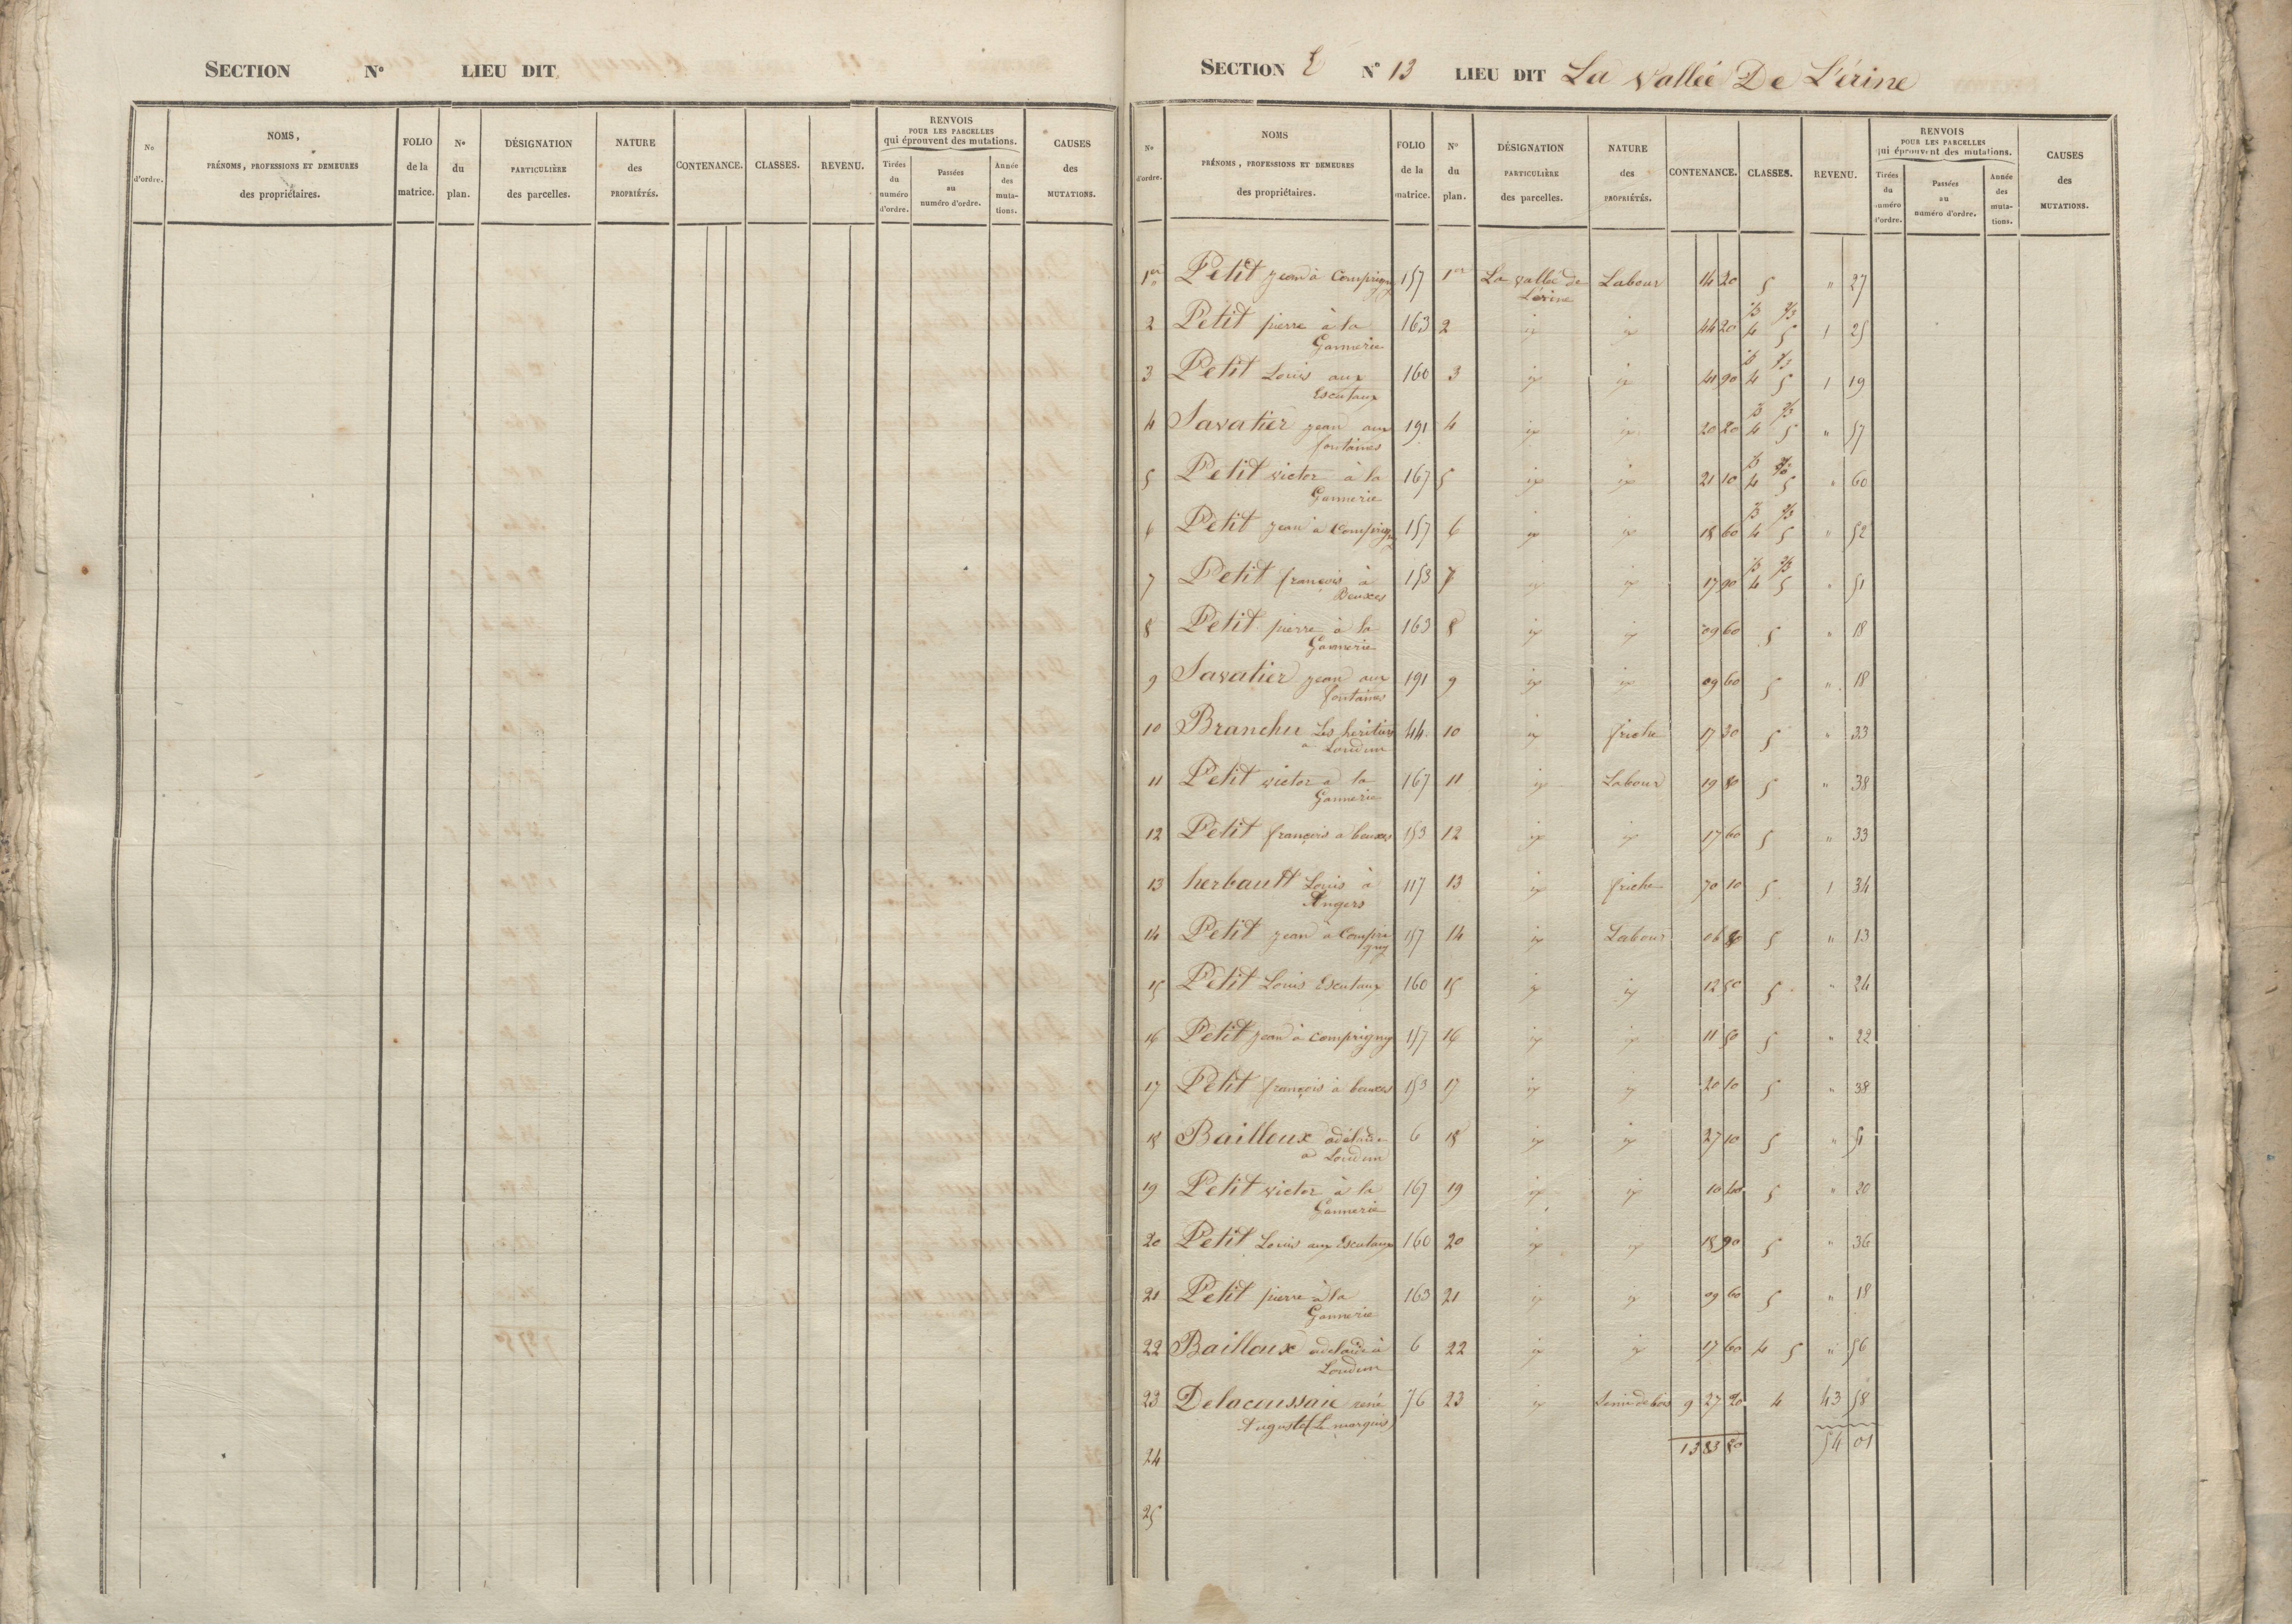 SECTION N° LIEU DIT
No d'ordre. NOMS, PRÉNOMS, PROFESSIONS ET DEMEURES des propriétaires. FOLIO de la matrice. No du plan. DÉSIGNATION PARTICULIÈRE des parcelles. NATURE des PROPRIÉTÉS. CONTENANCE. CLASSES. REVENU. RENVOIS POUR LES PARCELLES qui éprouvent des mutations. Tirées du numéro d'ordre. Passées au numéro d'ordre. Année des mutations. CAUSES des MUTATIONS.
SECTION E N° 13 LIEU DIT La Vallée De L'érine
No d'ordre. NOMS PRÉNOMS, PROFESSIONS ET DEMEURES des propriétaires. FOLIO de la matrice. N° du plan. DÉSIGNATION PARTICULIÈRE des parcelles. NATURE des PROPRIÉTÉS. CONTENANCE. CLASSES. REVENU. RENVOIS POUR LES PARCELLES qui éprouvent des mutations. Tirées du numéro d'ordre. Passées au numéro d'ordre. Année des mutations. CAUSES des MUTATIONS.
1er Petit jean à Comprigny 157 1er La vallée de Labour 14 20 5 " 27
L'érine
2 Petit pierre à la 163 2 44 20 4 5 1 25
Gannerie
3 Petit Louis aux 160 3 41 90 4 5 1 19
Escutaux
4 Savatier jean aux 191 4 20 20 4 5 " 57
fontaines
5 Petit victor à la 167 5 21 10 4 5 " 60
Gannerie
6 Petit jean à Comprigny 157 6 18 60 4 5 " 52
7 Petit françois à 153 7 17 90 4 5 " 51
Beuxes
8 Petit pierre à la 163 8 09 60 5 " 18
Gannerie
9 Savatier jean aux 191 9 09 60 5 " 18
fontaines
10 Branchu Les heritiers 44 10 friche 17 30 5 " 33
a Loudun
11 Petit victor a la 167 11 Labour 19 80 5 " 38
Gannerie
12 Petit françois a beuxes 153 12 17 60 5 " 33
13 herbault Louis à 117 13 friche 70 10 5 1 34
Angers
14 Petit jean à Compri 157 14 Labour 06 80 5 " 13
gny
15 Petit Louis Escutaux 160 15 12 50 5 " 24
16 Petit jean à comprigny 157 16 11 50 5 " 22
17 Petit françois à beuxes 153 17 20 10 5 " 38
18 Bailloux adelaide 6 18 27 10 5 " 51
a Loudun
19 Petit victor à la 167 19 10 40 5 " 20
Gannerie
20 Petit Louis aux Escutaux 160 20 18 90 5 " 36
21 Petit pierre à la 163 21 09 60 5 " 18
Gannerie
22 Bailloux adelaide à 6 22 17 60 4 5 " 56
Loudun
23 Delacoussaie réné 76 23 9 27 20 4 43 58
Auguste (Le marquis)
13 83 80 54 01
24
25